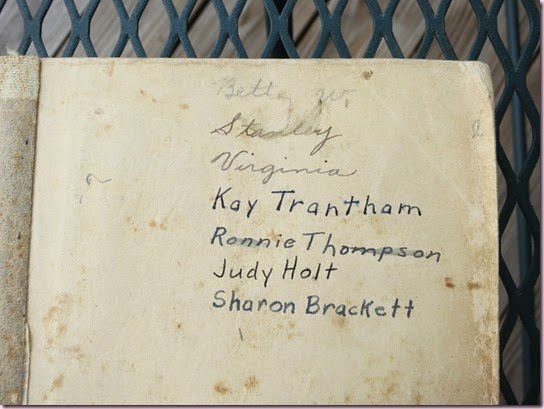 Betty W.
Stanley
Virginia
Kay Trantham
Ronnie Thompson
Judy Holt
Sharon Brackett